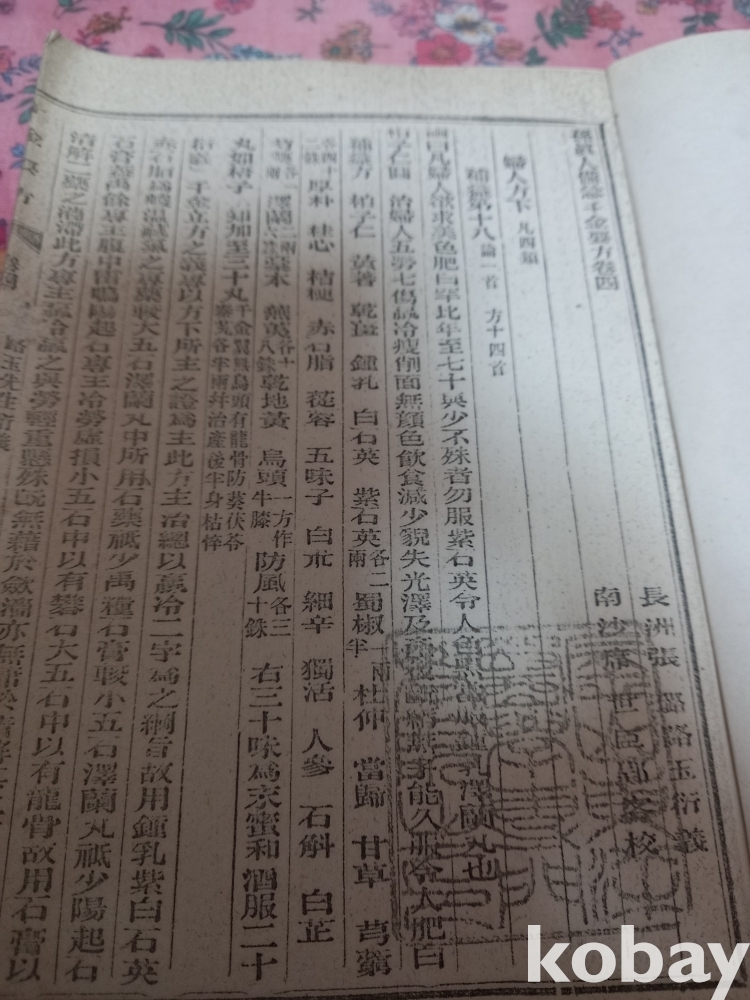 真人備急千金要方卷四
長洲張璐路玉衍義
南沙席世臣郢客校
婦人方下 凡四類
補益第十八 論一首 方十四首
論曰凡婦人欲求美色肥白罕比年至七十與少不殊者勿服紫石英令人色黑當服鍾乳澤蘭丸也
柏子仁丸 治婦人五勞七傷羸冷瘦削面無顏色飲食減少貌失光澤及 能久服令人肥白
補益方 柏子仁 黃蓍 乾薑 鍾乳 白石英 紫石英各二兩 蜀椒一兩半 杜仲 當歸 甘草 芎藭
厚朴 桂心 桔梗 赤石脂 蓯容 五味子 白朮 細辛 獨活 人參 石斛 白芷
芍藥 澤蘭 藁本 蕪荑各十八銖 乾地黃 烏頭一方作牛膝 防風各三十銖 右三十味為末蜜和酒服二十
丸如梧子 知加至三十丸 千金翼無烏頭有龍骨防葵茯苓 秦芃各半兩并治產後半身枯悴
衍義 千金立方之義專以方下所主之證為主此方主治總以羸冷二字為之綱旨故用鍾乳紫白石英
赤石脂為 溫羸氣之專藥較大五石澤蘭丸中所用石藥祗少禹種石膏較小五石澤蘭丸祗少陽起石
石膏蓋禹餘專主腹中雷鳴陽起石專主冷勞虛損小五石中以有礬石大五石中以有龍骨故用石膏以
清解二藥之 滯此方專主羸冷羸之與勞輕重懸殊既無藉於斂濇亦無
路玉先生衍義
卷四
kobay